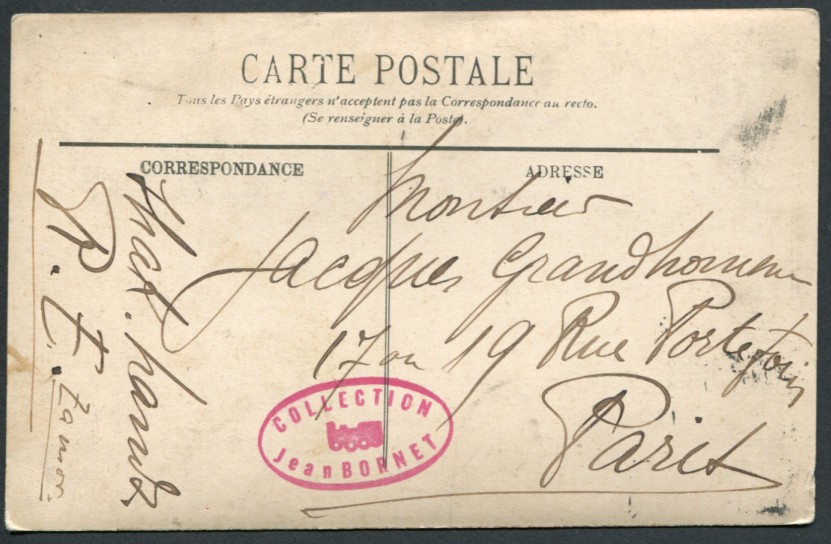 CARTE POSTALE
Tous les Pays étrangers n'acceptent pas la Correspondance au recto.
(Se renseigner à la Poste).
CORRESPONDANCE
ADRESSE
Shak. hands
P. t.
Monsieur
Jacques Grandhomme
17 ou 19 Rue Portefoin
Paris
COLLECTION
Jean BORNET